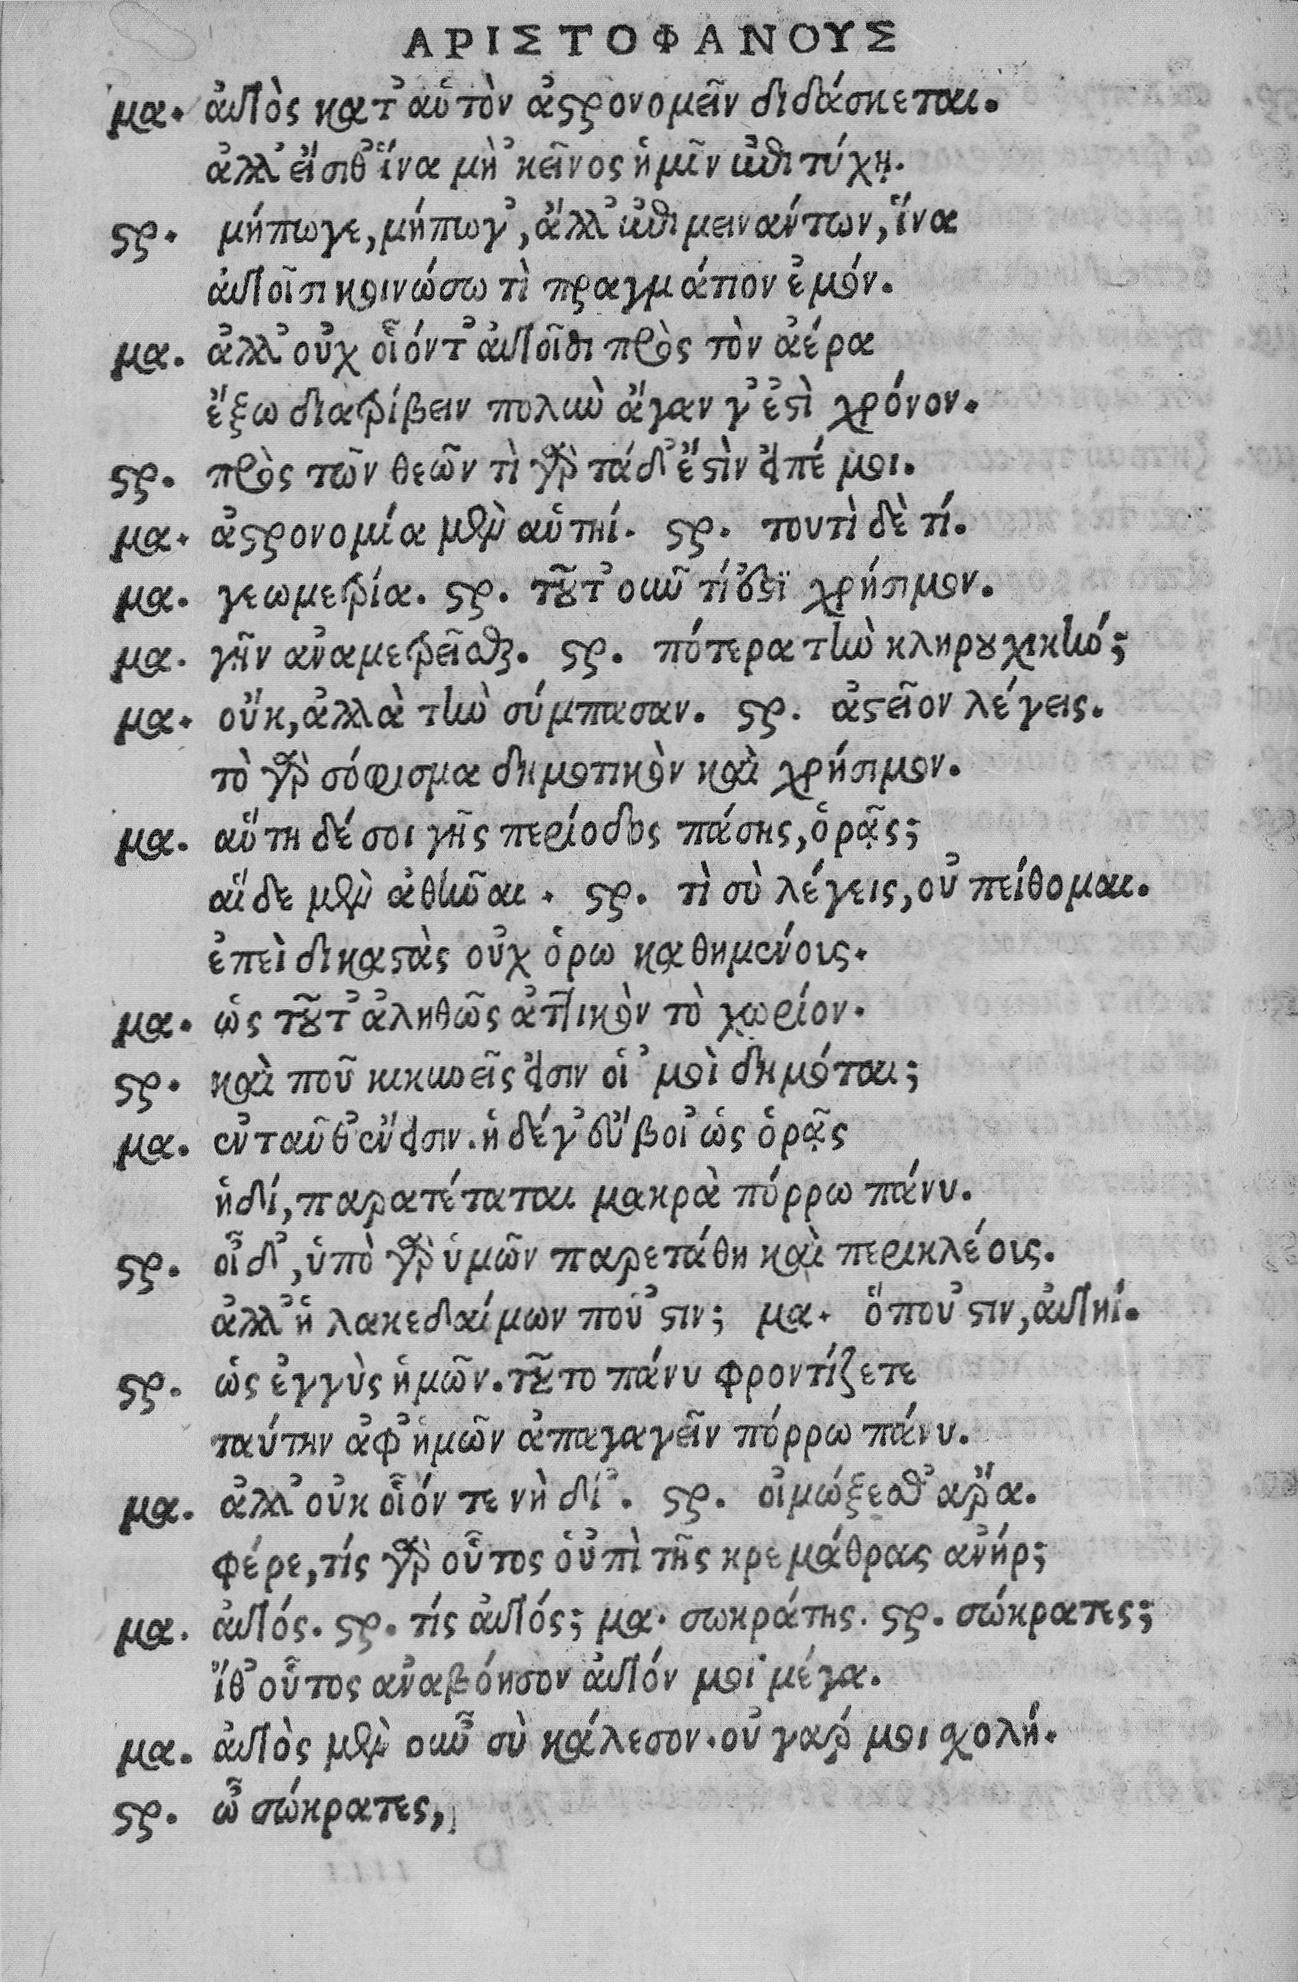 ΑΡΙΣΤΟΦΑΝΟΥΣ
μα. αὐτὸς κατ' αὑτὸν ἀστρονομεῖν διδάσκεται.
ἀλλ' εἴσιθ' ἵνα μὴ 'κεῖνος ἡμῖν ἐπιτύχῃ.
στρ. μήπωγε, μήπωγ', ἀλλ' ἐπιμεινάντων, ἵνα
αὐτοῖσι κοινώσω τὶ πραγμάτιον ἐμόν.
μα. ἀλλ' οὐχ οἷόντ' αὐτοῖσι πρὸς τὸν ἀέρα
ἔξω διατρίβειν πολὺν ἄγαν γ' ἐστὶ χρόνον.
στρ. πρὸς τῶν θεῶν τὶ γὰρ τάδ' ἔστὶν εἰπέ μοι.
μα. ἀστρονομία μὲν αὑτηί. στρ. τουτὶ δὲ τί.
μα. γεωμετρία. στρ. τοῦτ' οὖν τί ἐστὶ χρήσιμον.
μα. γῆν ἀναμετρεῖσθαι. στρ. πότερα τὴν κληρουχικήν;
μα. οὔκ, ἀλλὰ τὴν σύμπασαν. στρ. ἀστεῖον λέγεις.
τὸ γὰρ σόφισμα δημοτικὸν καὶ χρήσιμον.
μα. αὕτη δέ σοι γῆς περίοδος πάσης, ὁρᾷς;
αἵδε μὲν ἀθῆναι. στρ. τὶ σὺ λέγεις, οὐ πείθομαι.
ἐπεὶ δικαστὰς οὐχ ὁρω καθημένους.
μα. ὡς τοῦτ' ἀληθῶς ἀττικὸν τὸ χωρίον.
στρ. καὶ ποῦ κικυνεῖς εἰσιν οἱ 'μοὶ δημόται;
μα. ἐνταῦθ' ἔνεισιν. ἡ δέ γ' εὔβοι' ὡς ὁρᾷς
ἡδί, παρατέταται μακρὰ πόρρω πάνυ.
στρ. οἶδ', ὑπὸ γὰρ ὑμῶν παρετάθη καὶ περικλέους.
ἀλλ' ἡ λακεδαίμων πού 'στιν; μα. ὅπου 'στιν, αὐτηί.
στρ. ὡς ἐγγὺς ἡμῶν. τοῦτο πάνυ φροντίζετε
ταύτην ἀφ' ἡμῶν ἀπαγαγεῖν πόρρω πάνυ.
μα. ἀλλ' οὐκ οἷόν τε νὴ δί'. στρ. οἰμώξεσθ' ἄρα.
φέρε, τίς γὰρ οὗτος οὑπὶ τῆς κρεμάθρας ἀνήρ;
μα. αὐτός. στρ. τίς αὐτός; μα. σωκράτης. στρ. σώκρατες;
ἴθ' οὗτος ἀναβόησον αὐτόν μοι μέγα.
μα. αὐτὸς μὲν οὖν σὺ κάλεσον. οὐ γάρ μοι σχολή.
στρ. ὦ σώκρατες,